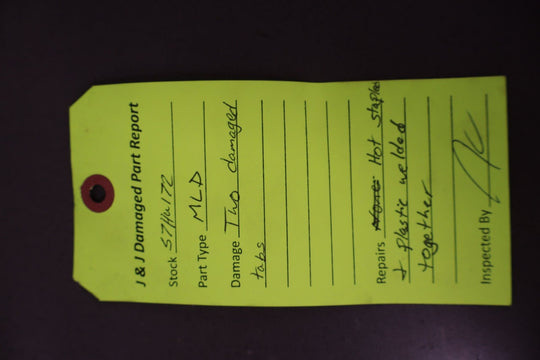 J & J Damaged Part Report
Stock S7HW172
Part Type MLD
Damage Two damaged
tabs
Repairs Hot staples
+ plastic welded
together
Inspected By